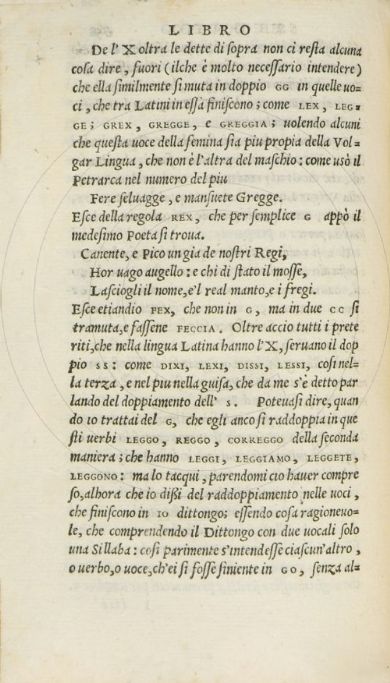 LIBRO
De l' X oltra le dette di sopra non ci resta alcuna
cosa dire, fuori (ilche è molto necessario intendere)
che ella similmente si muta in doppio GG in quelle uo=
ci, che tra Latini in essa finiscono; come LEX, LEG=
GE; GREX, GREGGE, E GREGGIA; uolendo alcuni
che questa uoce della femina sia piu propia della Vol=
gar Lingua, che non è l'altra del maschio: come usò il
Petrarca nel numero del piu
Fere seluagge, e mansuete Gregge.
Esce della regola REX, che per semplice G appò il
medesimo Poeta si troua.
Canente, e Pico un gia de nostri Regi,
Hor uago augello: e chi di stato il mosse,
Lasciogli il nome, e'l real manto, e i fregi.
Esce etiandio FEX, che non in G, ma in due CC si
tramuta, e fassene FECCIA. Oltre accio tutti i prete
riti, che nella lingua Latina hanno l'X, seruano il dop
pio SS: come DIXI, LEXI, DISSI, LESSI, cosi nel=
la terza, e nel piu nella guisa, che da me s'è detto par
lando del doppiamento dell' S. Poteuasi dire, quan
do io trattai del G, che egli anco si raddoppia in que
sti uerbi LEGGO, REGGO, CORREGGO della seconda
maniera; che hanno LEGGI, LEGGIAMO, LEGGETE,
LEGGONO: ma lo tacqui, parendomi cio hauer compre
so, alhora che io dißi del raddoppiamento nelle uoci,
che finiscono in IO dittongo; essendo cosa ragioneuo=
le, che comprendendo il Dittongo con due uocali solo
una Sillaba: così parimente s'intendesse ciascun'altro,
o uerbo, o uoce, ch'ei si fosse finiente in GO, senza al=